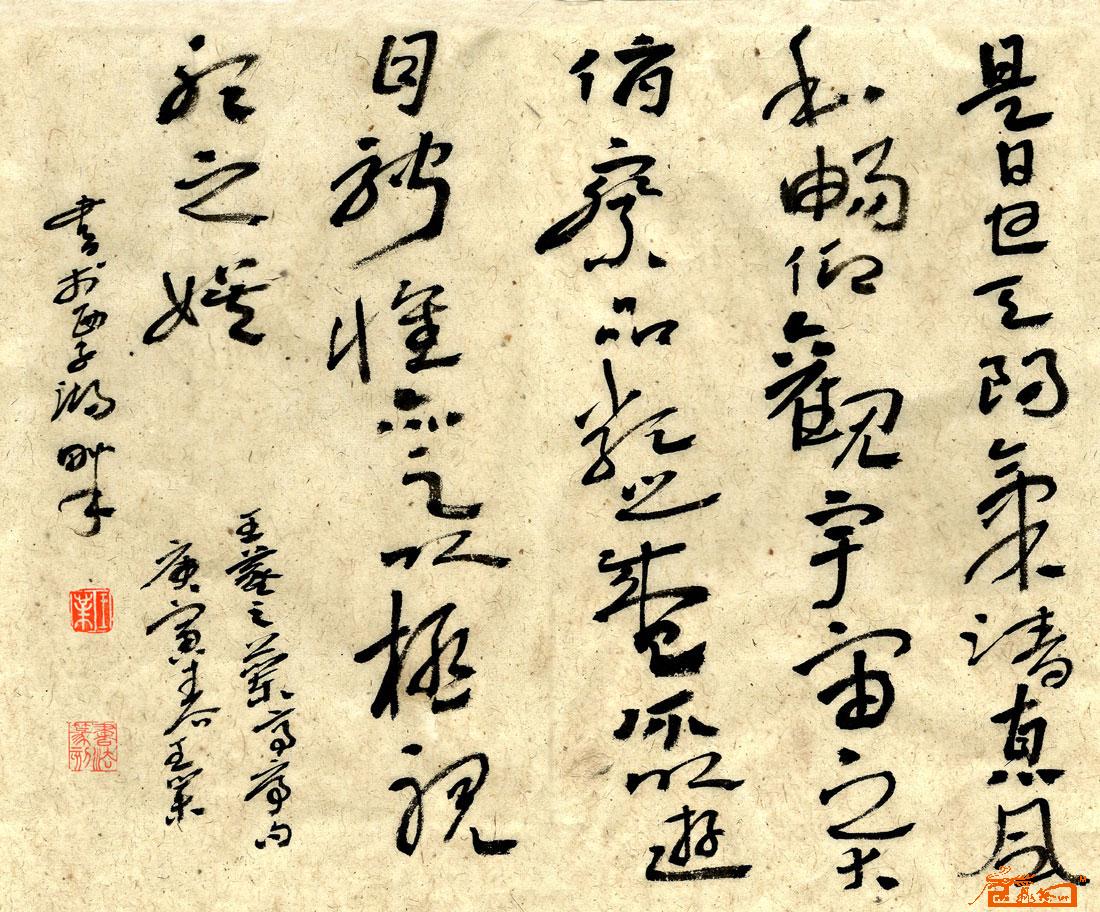 是日也天朗氣清惠風
和暢仰觀宇宙之大
俯察品類之盛所以遊
目騁懷足以極視
聽之娛
王羲之蘭亭序句
庚寅春心王業
書於西子湖畔
王業
書法篆刻